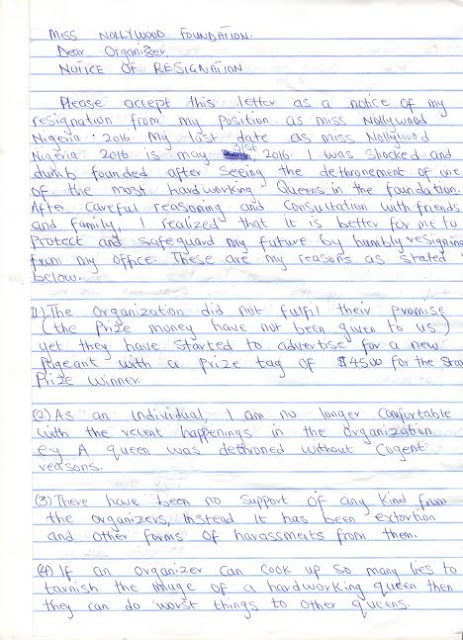 MISS NOLLYWOOD FOUNDATION.
Dear Organizer,
NOTICE OF RESIGNATION
Please accept this letter as a notice of my
resignation from my position as miss Nollywood
Nigeria 2016. My last date as miss Nollywood
Nigeria 2016 is may 31st, 2016. I was shocked and
dumb founded after seeing the dethronement of one
of the most hardworking Queens in the foundation.
After Careful reasoning and Consultation with friends
and family, I realized that it is better for me to
Protect and safeguard my future by humbly resigning
from my office. These are my reasons as stated
below.
(1) The Organization did not fulfil their promise
(the Prize money have not been given to us)
yet they have started to advertise for a new
Pageant with a Prize tag of $4500 for the Star
Prize winner.
(2) As an individual, I am no longer Comfortable
with the recent happenings in the organization
e.g A queen was dethroned without Cogent
reasons.
(3) There have been no support of any kind from
the organizers, instead it has been extortion
and other forms of harassments from them.
(4) If an organizer can Cook up so many lies to
tarnish the image of a hardworking queen then
they can do worst things to other queens.